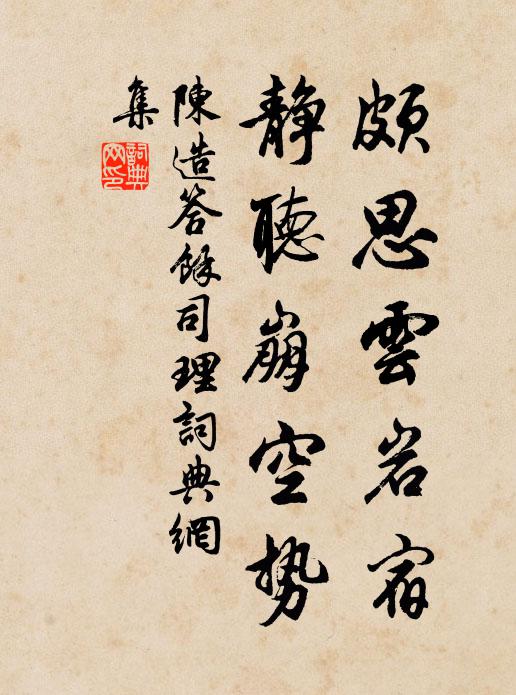 頗思雲岩宿
静聽崩空勢
陳造答餘司理詞典網
集
詞典
网印